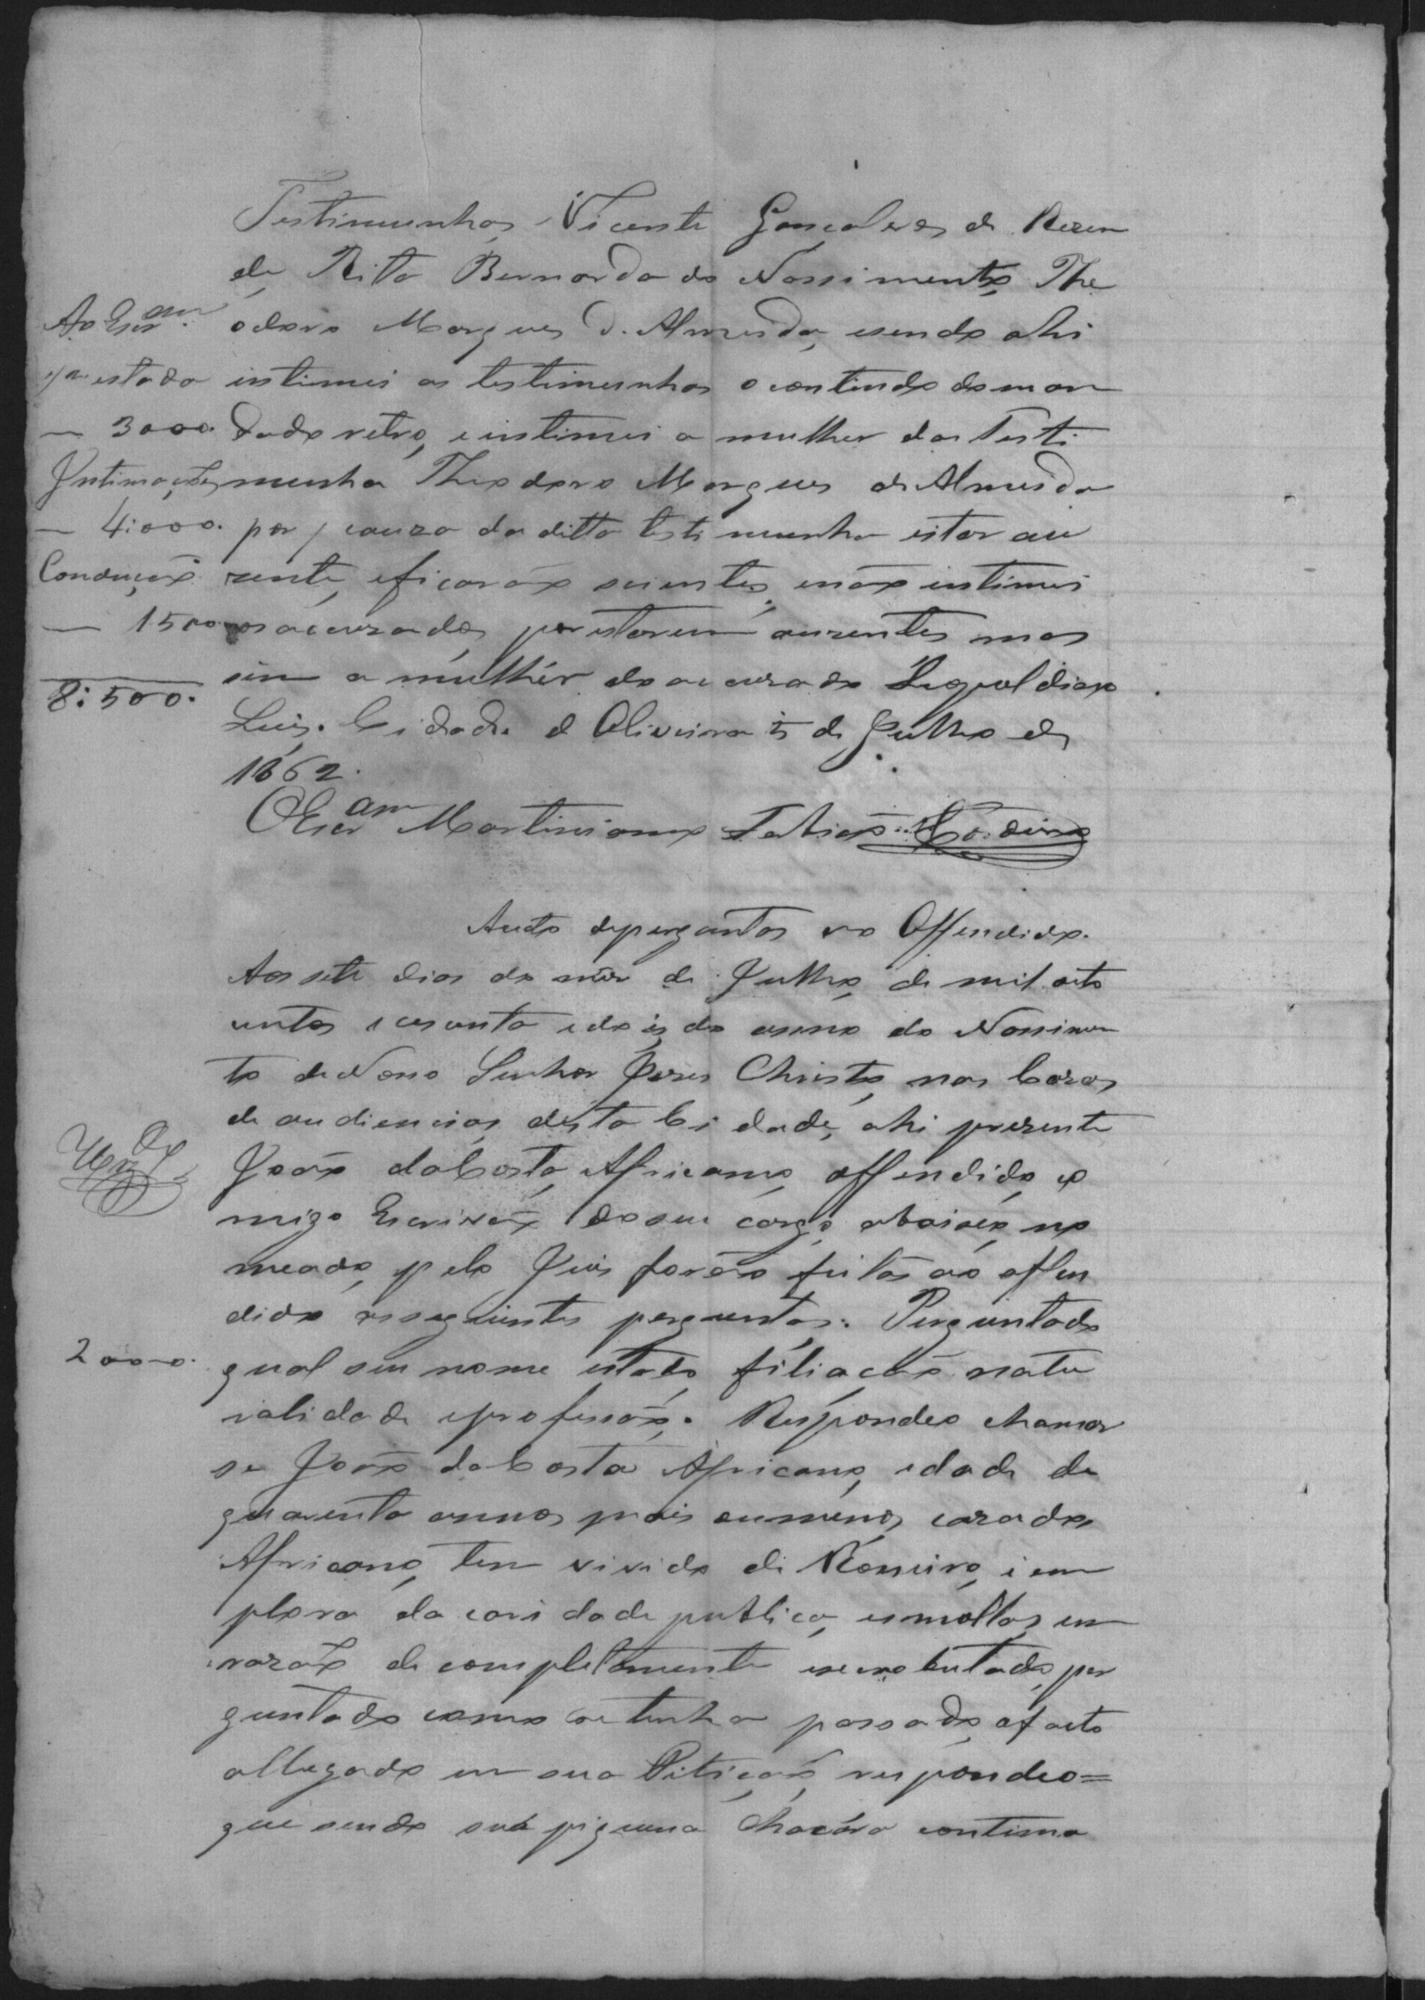 Testimunhas, Vicente Gonçalves de Rezen
de, Rita Bernarda do Nassimento, The
odoro Marques d'Almeida, esendo ahi
intimei as testimunhas o contiudo do man
dado retro, e intimei a mulher da Testi
munha Theodoro Marques de Almeida
por / cauza da ditta testimunha estar au
zente, eficarão scientes, enão intimei
os acuzados, por estarem auzentes mas
sim a mulhér do acuzado Liopoldino
Luis. Cidade d Oliveira 5 de Julho de
1862.
O Escr.am Martiniano
Ao Escr.am
pa estada
— 3000.
Intimações
— 4:000.
Condução
— 1500
8:500.
Auto deperguntas ao Offendido.
Aos sete dias do mês de Julho, de mil oito
centos e cesenta edois, do anno do Nassimen
to de Noso Senhor Jezus Christo, nas Cazas
de audiencias, desta Cidade, ahi prezente
João daCosta, Africano, offendido, co
migo Escrivão do seu cargo, abaixo, no
meado, pelo Juis forão feitas ao offen
dido as seguintes perguntas. Perguntado
2000.
qual seu nome, estado, filiação, natu
ralidade, eprofissão. Respondeo chamar
se João daCosta Africano, edade de
quarenta annos, mais oumenos, cazado,
Africano, tem vivido di Roceiro, i em
plora da caridade publica, esmollas, em
razão de completamente per
guntado como se tinha passado, ofacto
allegado em sua Petição, respondeo=
que sendo sua piquena Chacára contima